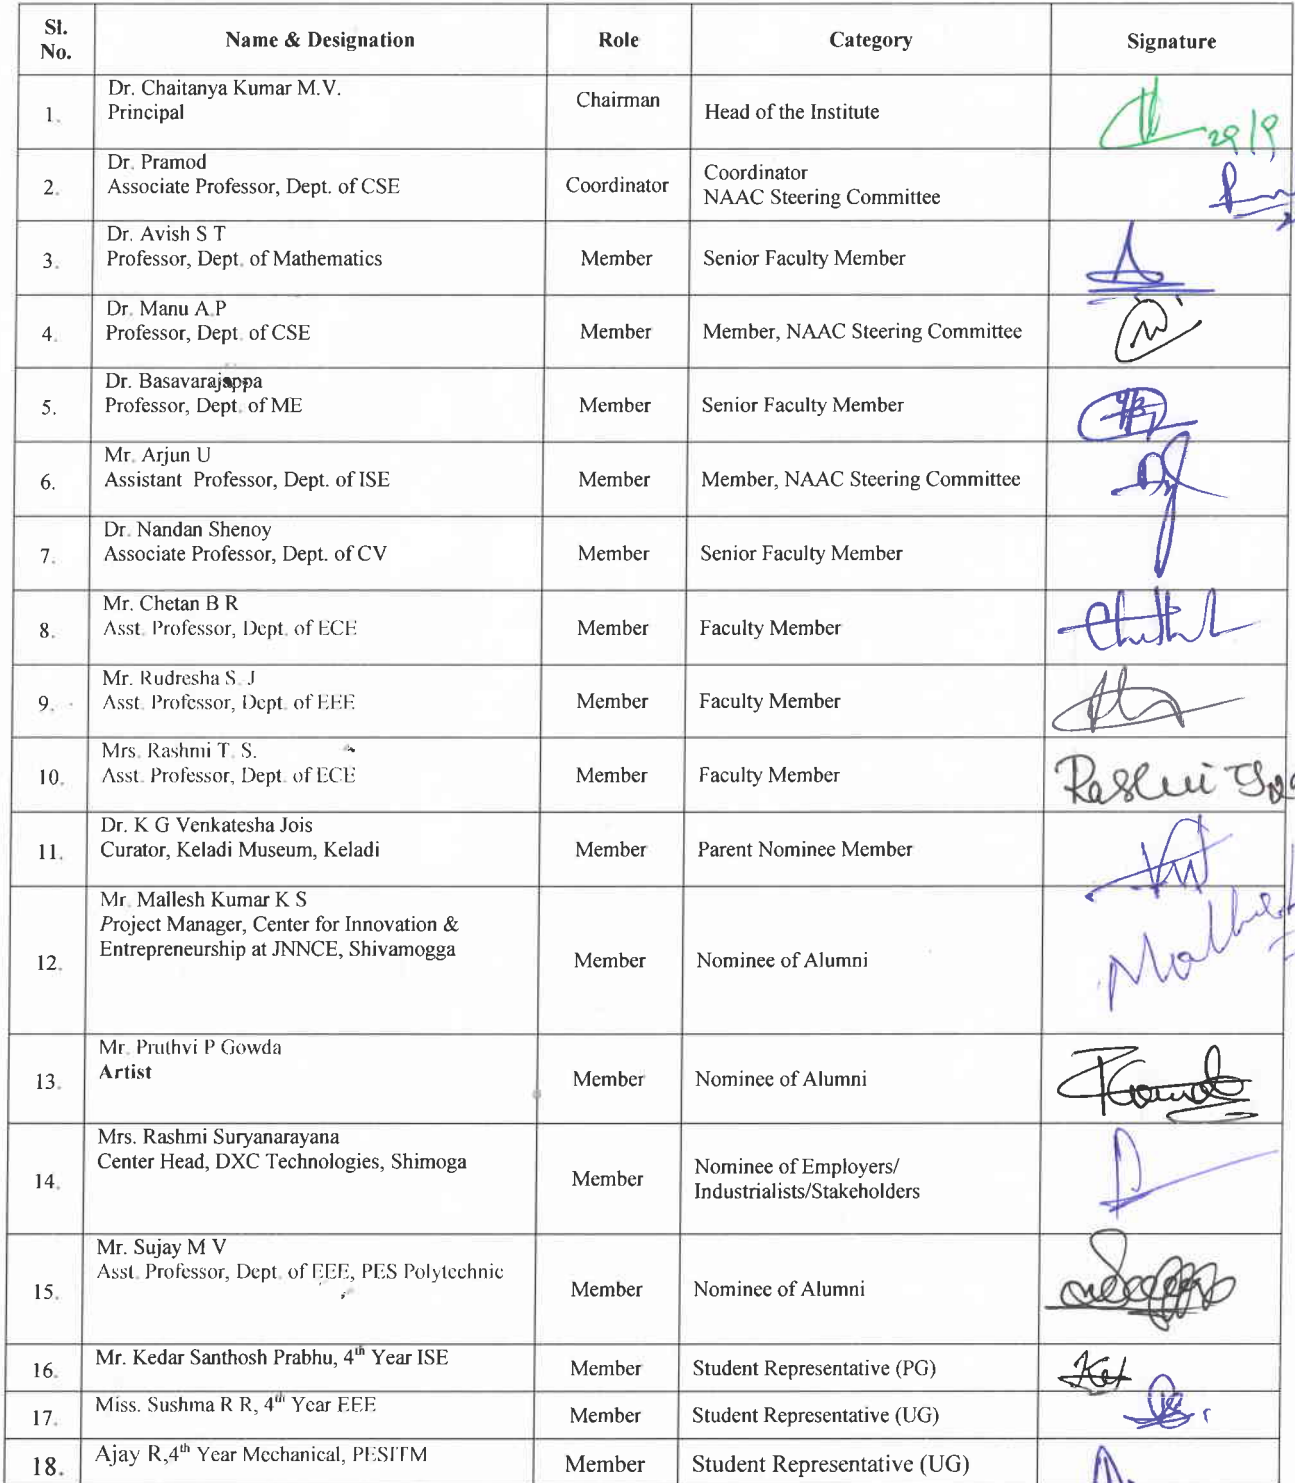 Sl. No. Name & Designation Role Category Signature
1. Dr. Chaitanya Kumar M.V.
Principal Chairman Head of the Institute 29/9
2. Dr. Pramod
Associate Professor, Dept. of CSE Coordinator Coordinator
NAAC Steering Committee
3. Dr. Avish S T
Professor, Dept. of Mathematics Member Senior Faculty Member
4. Dr. Manu A.P
Professor, Dept. of CSE Member Member, NAAC Steering Committee
5. Dr. Basavarajappa
Professor, Dept. of ME Member Senior Faculty Member
6. Mr. Arjun U
Assistant Professor, Dept. of ISE Member Member, NAAC Steering Committee
7. Dr. Nandan Shenoy
Associate Professor, Dept. of CV Member Senior Faculty Member
8. Mr. Chetan B R
Asst. Professor, Dept. of ECE Member Faculty Member
9. Mr. Rudresha S. J
Asst. Professor, Dept. of EEE Member Faculty Member
10. Mrs. Rashmi T. S.
Asst. Professor, Dept. of ECE Member Faculty Member Rashmi
11. Dr. K G Venkatesha Jois
Curator, Keladi Museum, Keladi Member Parent Nominee Member
12. Mr. Mallesh Kumar K S
Project Manager, Center for Innovation &
Entrepreneurship at JNNCE, Shivamogga Member Nominee of Alumni
13. Mr. Pruthvi P Gowda
Artist Member Nominee of Alumni
14. Mrs. Rashmi Suryanarayana
Center Head, DXC Technologies, Shimoga Member Nominee of Employers/
Industrialists/Stakeholders
15. Mr. Sujay M V
Asst. Professor, Dept. of EEE, PES Polytechnic Member Nominee of Alumni
16. Mr. Kedar Santhosh Prabhu, 4th Year ISE Member Student Representative (PG)
17. Miss. Sushma R R, 4th Year EEE Member Student Representative (UG)
18. Ajay R,4th Year Mechanical, PESITM Member Student Representative (UG)